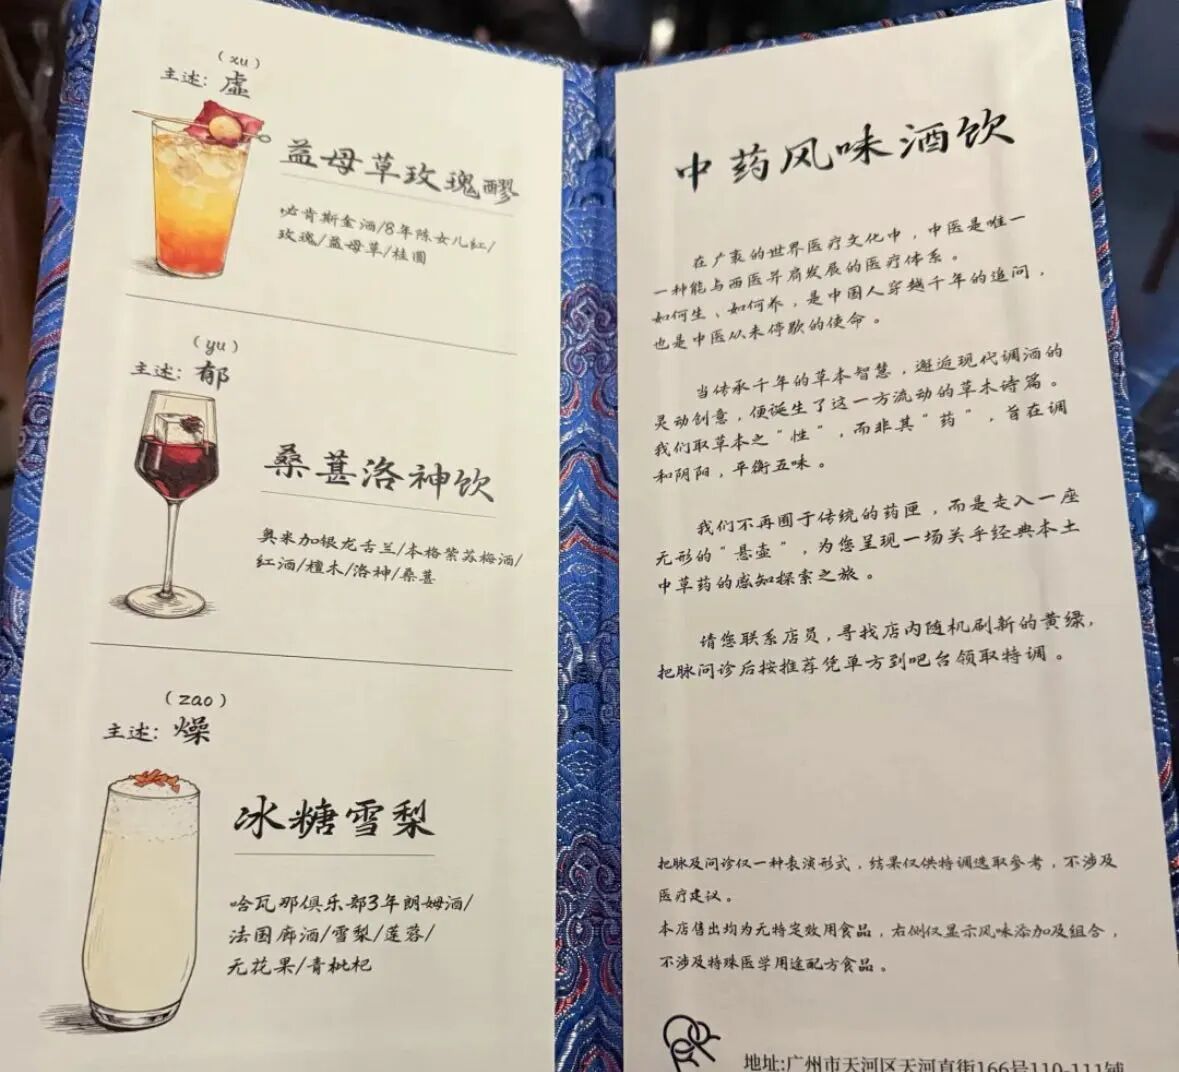 (xu)
主述: 虚
益母草玫瑰醪
必肯斯金酒/8年陈女儿红/
玫瑰/益母草/桂圆
(yu)
主述: 郁
桑葚洛神饮
奥米加银龙舌兰/本格紫苏梅酒/
红酒/檀木/洛神/桑葚
(zao)
主述: 燥
冰糖雪梨
哈瓦那俱乐部3年朗姆酒/
法国廊酒/雪梨/莲蓉/
无花果/青枇杷
中药风味酒饮
在广袤的世界医疗文化中，中医是唯一
一种能与西医并肩发展的医疗体系。
如何生、如何养，是中国人穿越千年的追问，
也是中医从未停歇的使命。
当传承千年的草本智慧，邂逅现代调酒的
灵动创意，便诞生了这一方流动的草木诗篇。
我们取草本之“性”，而非其“药”，旨在调
和阴阳，平衡五味。
我们不再囿于传统的药匣，而是走入一座
无形的“悬壶”，为您呈现一场关乎经典本土
中草药的感知探索之旅。
请您联系店员,寻找店内随机刷新的黄绿,
把脉问诊后按推荐凭单方到吧台领取特调。
把脉及问诊仅一种表演形式，结果仅供特调选取参考，不涉及
医疗建议。
本店售出均为无特定效用食品，右侧仅显示风味添加及组合，
不涉及特殊医学用途配方食品。
地址:广州市天河区天河直街166号110-111铺